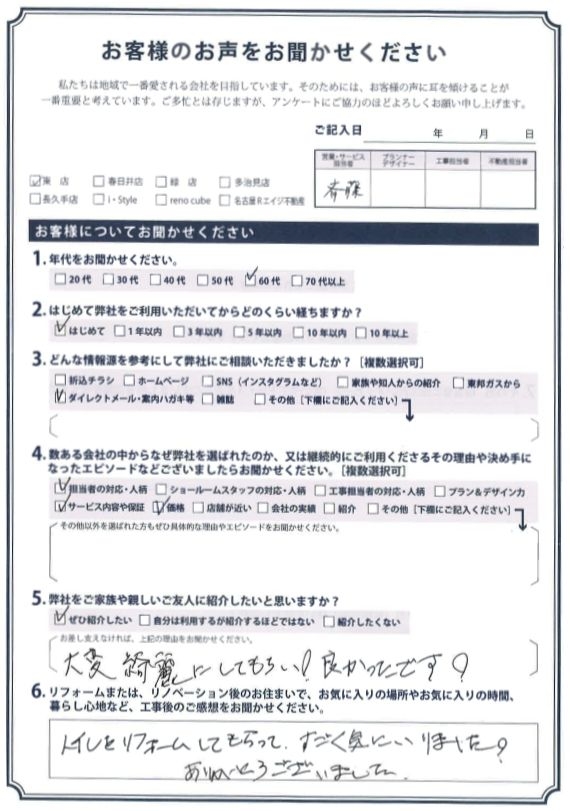 お客様のお声をお聞かせください
私たちは地域で一番愛される会社を目指しています。そのためには、お客様の声に耳を傾けることが
一番重要と考えています。ご多忙とは存じますが、アンケートにご協力のほどよろしくお願い申し上げます。
ご記入日 年 月 日
営業・サービス担当者 プランナーデザイナー 工事担当者 不動産担当者
斉藤
☑東 店 □春日井店 □緑 店 □多治見店
□長久手店 □i・Style □reno cube □名古屋Rエイジ不動産
お客様についてお聞かせください
1. 年代をお聞かせください。
□20代 □30代 □40代 □50代 ☑60代 □70代以上
2. はじめて弊社をご利用いただいてからどのくらい経ちますか？
☑はじめて □1年以内 □3年以内 □5年以内 □10年以内 □10年以上
3. どんな情報源を参考にして弊社にご相談いただきましたか？［複数選択可］
□折込チラシ □ホームページ □SNS（インスタグラムなど） □家族や知人からの紹介 □東邦ガスから
☑ダイレクトメール・案内ハガキ等 □雑誌 □その他［下欄にご記入ください］
4. 数ある会社の中からなぜ弊社を選ばれたのか、又は継続的にご利用くださるその理由や決め手に
なったエピソードなどございましたらお聞かせください。［複数選択可］
☑担当者の対応・人柄 □ショールームスタッフの対応・人柄 □工事担当者の対応・人柄 □プラン＆デザイン力
☑サービス内容や保証 ☑価格 □店舗が近い □会社の実績 □紹介 □その他［下欄にご記入ください］
その他以外を選ばれた方もぜひ具体的な理由やエピソードをお聞かせください。
5. 弊社をご家族や親しいご友人に紹介したいと思いますか？
☑ぜひ紹介したい □自分は利用するが紹介するほどではない □紹介したくない
お差し支えなければ、上記の理由をお聞かせください。
大変 綺麗にしてもらい！良かったです？
6. リフォームまたは、リノベーション後のお住まいで、お気に入りの場所やお気に入りの時間、
暮らし心地など、工事後のご感想をお聞かせください。
トイレをリフォームしてもらって、すごく気にいりました？
ありがとうございました。